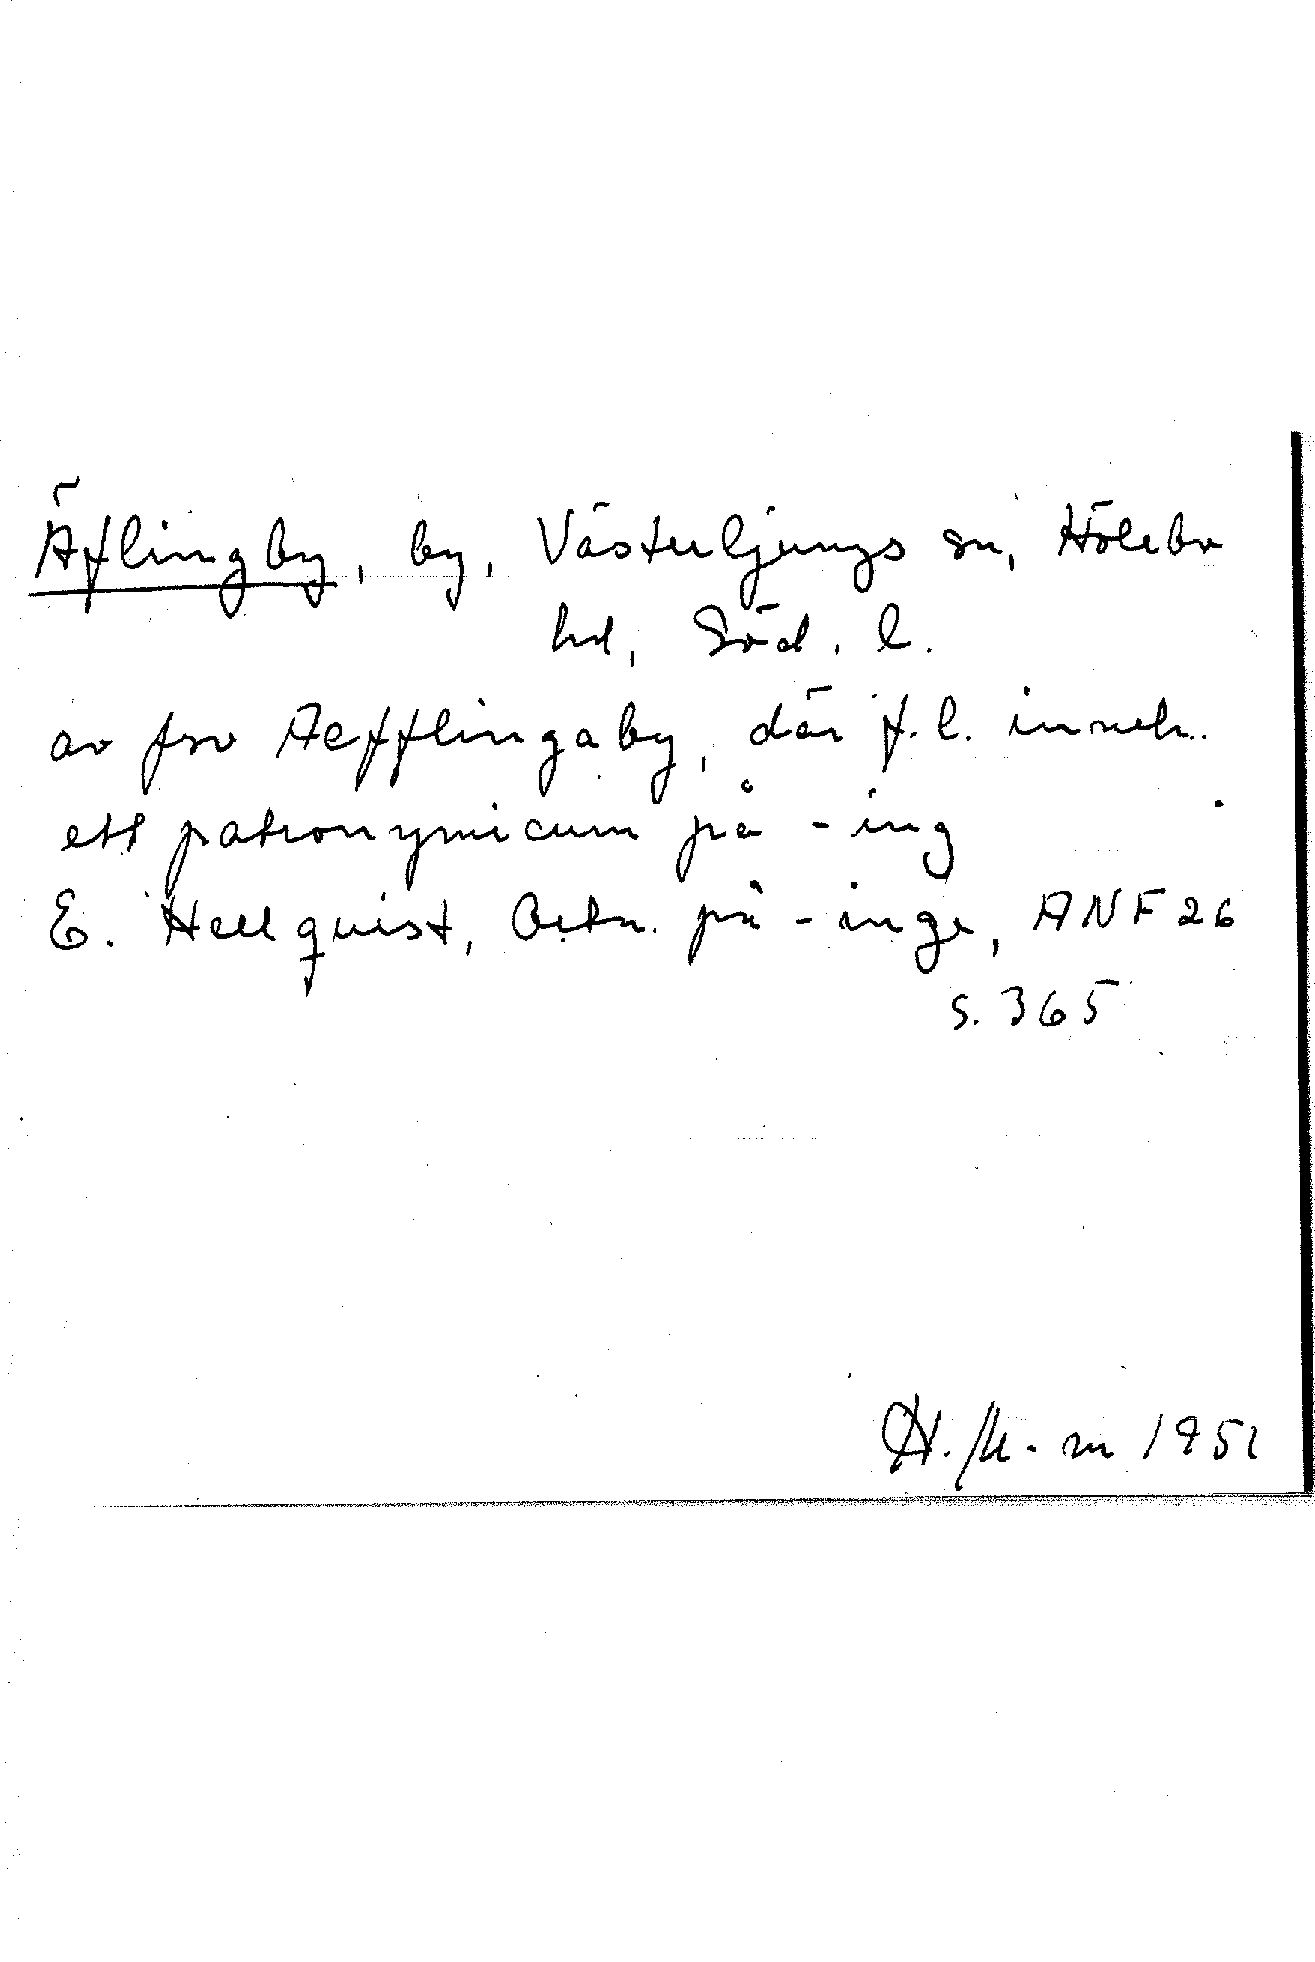 Äflingby, by, Västerljungs sn, Hölebo
hd, Söd. l.
av fsv Aefflingaby, där f.l. inneh.
ett patronymicum på -ing
E. Hellquist, Ortn. på -inge, ANF 26
s. 365
1951